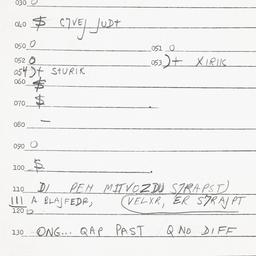 030 0
040 $ C7VEJ JUDT
050 0 051 0
052 0 053 )+ XIRIK
054 )+ STURIK
060 $
070 $
080 –
090 0
100 $
110 DI PEH MITVOZDU S7RAPST)
111 A BLAJFEDR, (VELXR, ER S7RAJPT
120 0
130 ONG... QAP PAST QNO DIFF